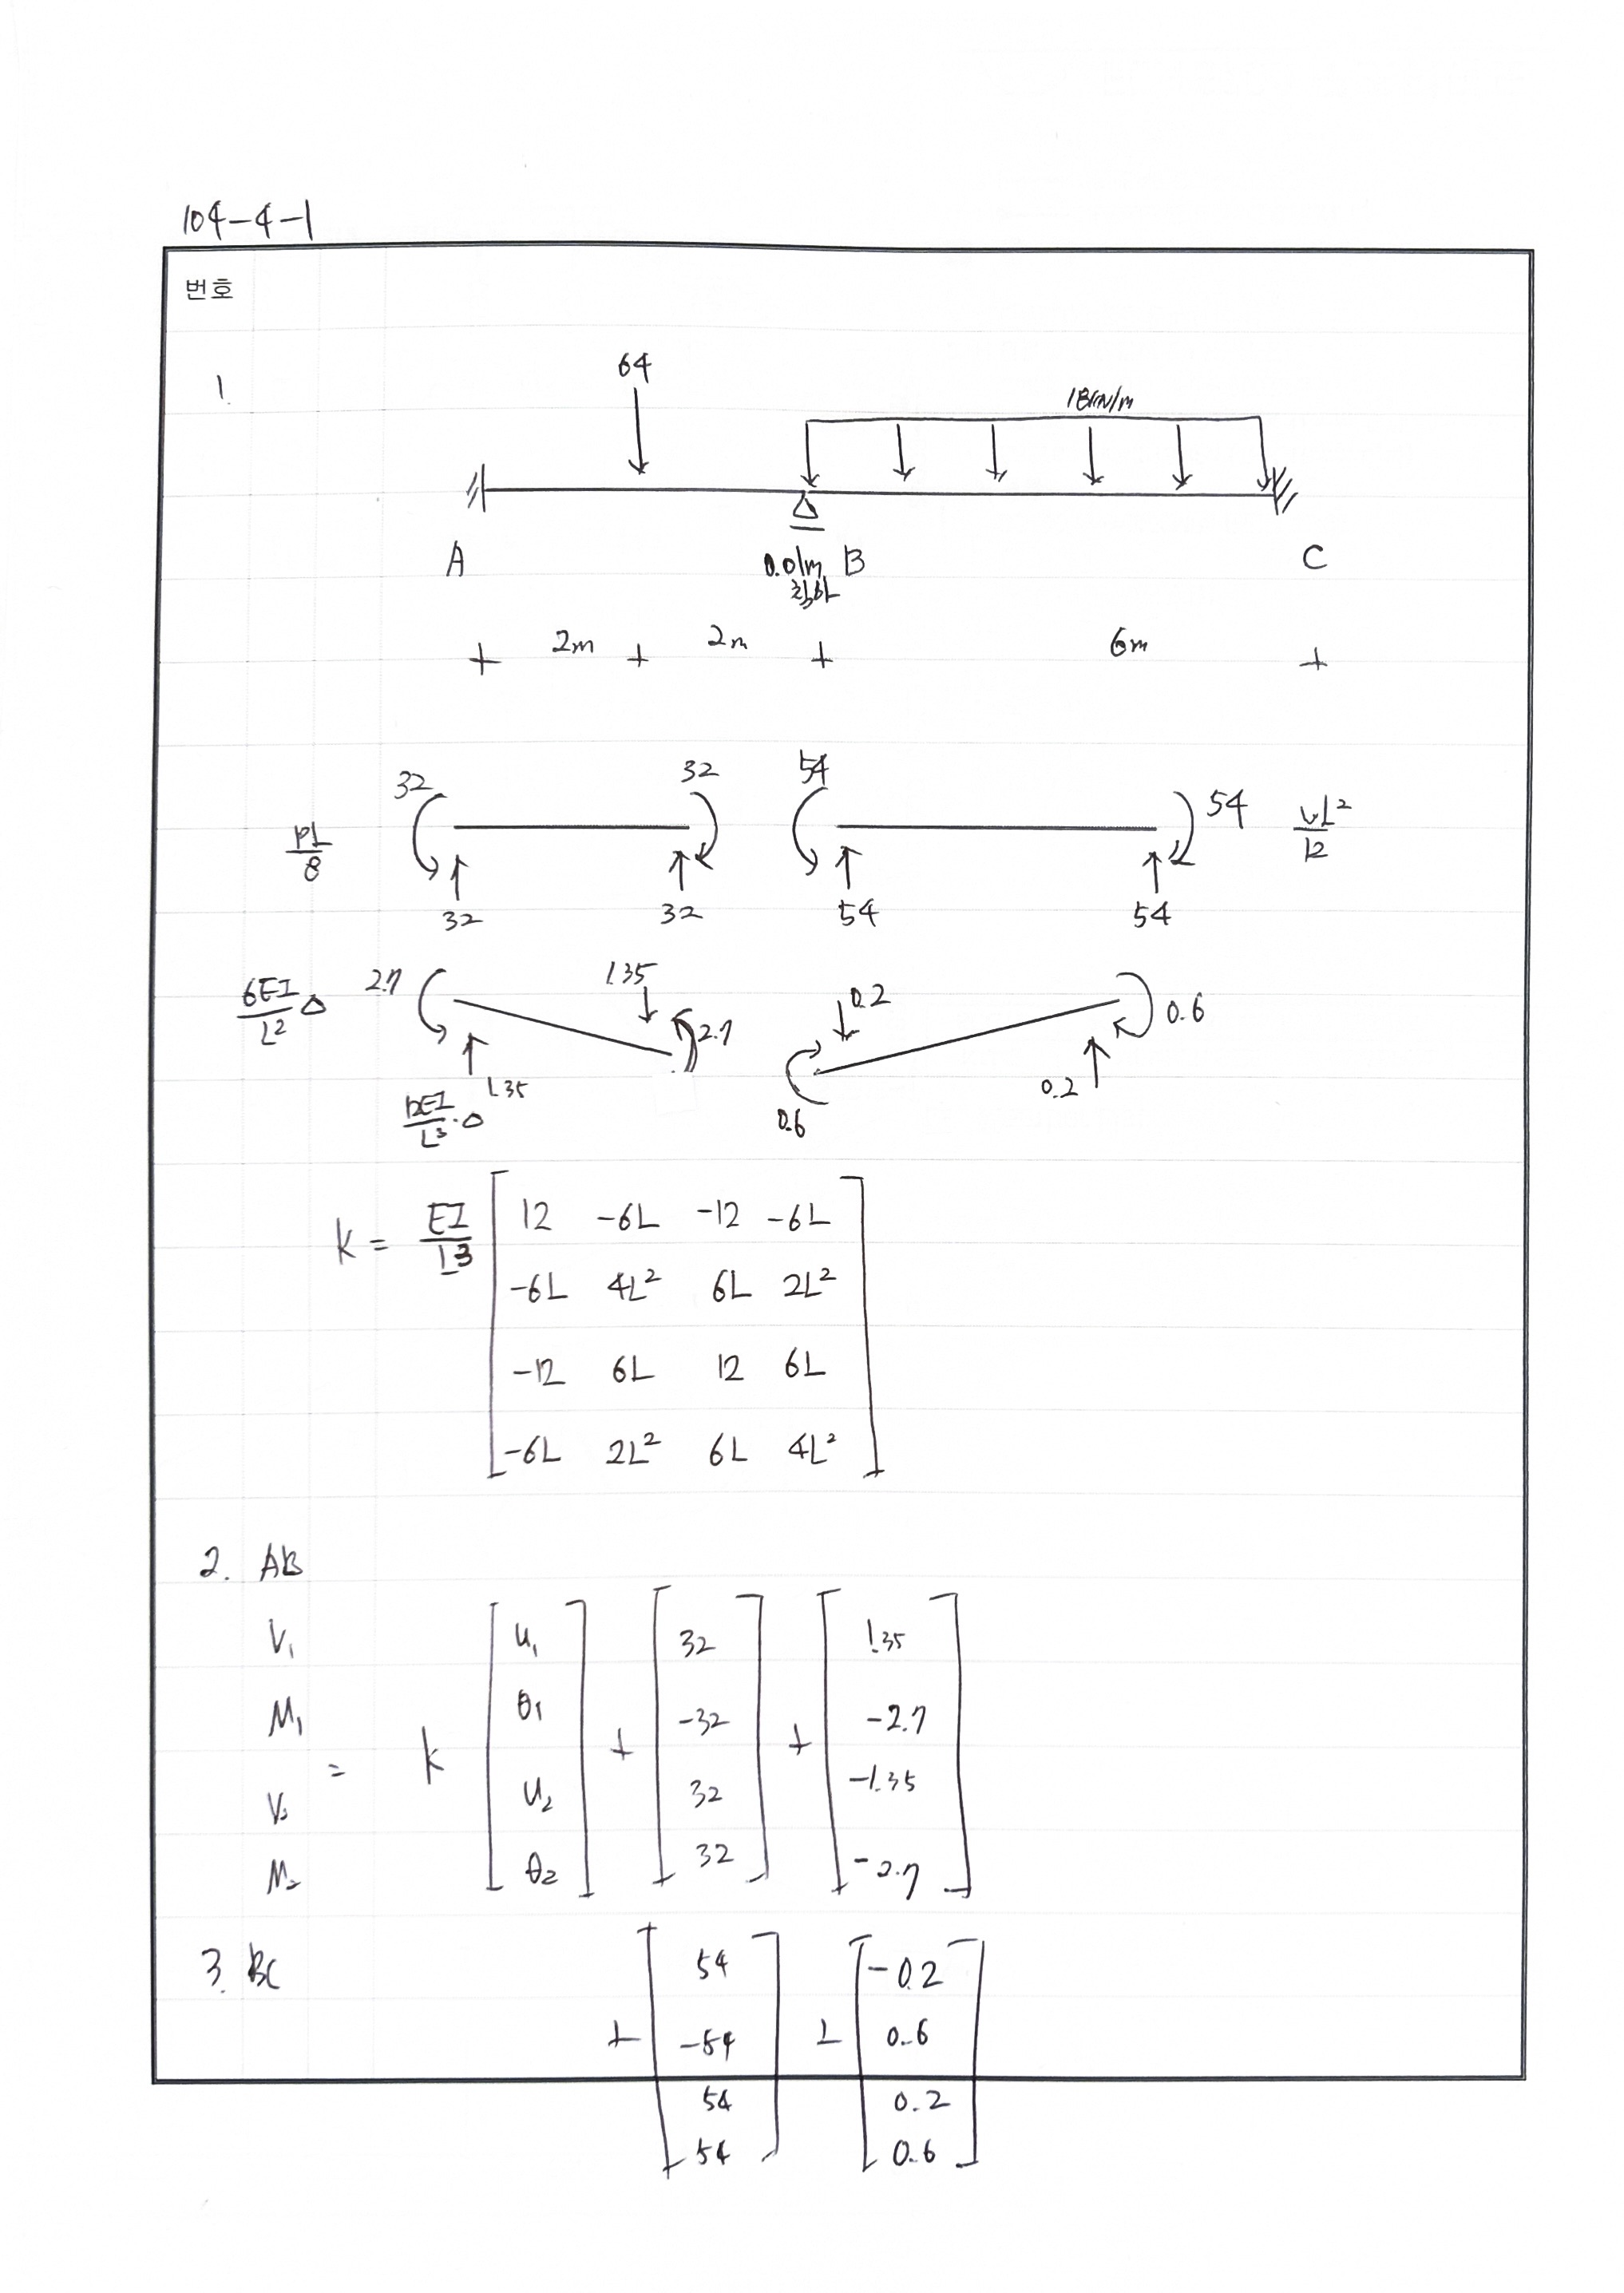 104-4-1
번호
1.
64
18kN/m
A 0.01m B C
침하
2m 2m 6m
32 32 54 54
PL/8 wL²/12
32 32 54 54
6EI/L² Δ 2.7 1.35 2.7 0.2 0.6
12EI/L³ · Δ 1.35 0.6 0.2
k = EI/L³
12 -6L -12 -6L
-6L 4L² 6L 2L²
-12 6L 12 6L
-6L 2L² 6L 4L²
2. AB
V₁ u₁ 32 1.35
M₁ θ₁ -32 -2.7
= k + +
V₂ u₂ 32 -1.35
M₂ θ₂ 32 -2.7
3. BC
54 -0.2
+ -54 + 0.6
54 0.2
54 0.6